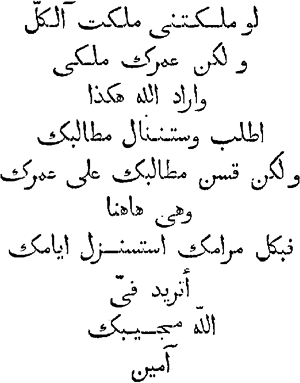 لو ملكتنى ملكت آلكلّ
و لكن عمرك ملكى
واراد الله هكذا
اطلب وستننال مطالبك
ولكن قسن مطالبك على عمرك
وهى هاهنا
فبكل مرامك استسنزل ايامك
أتريد فىّ
اللّه مجيبك
آمين